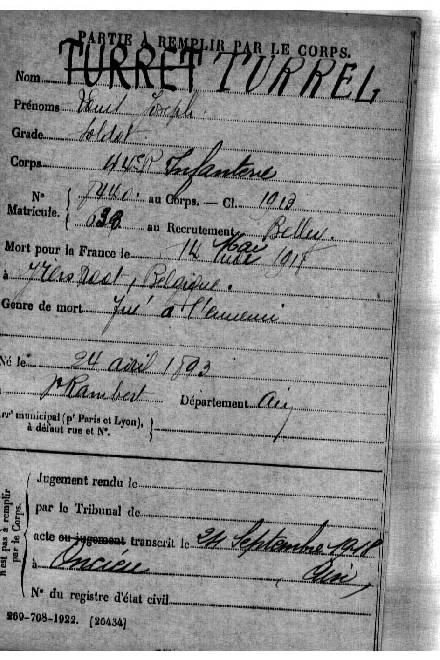 PARTIE À REMPLIR PAR LE CORPS.
Nom TURRET TURREL
Prénoms Joseph
Grade Soldat
Corps Infanterie
N° Matricule. 8440. au Corps. — Cl. 1913
638 au Recrutement Belley.
Mort pour la France le 14 Mai
à Belgique.
Genre de mort Tué à l'ennemi
Né le 24 avril 1893
St Rambert Département Ain
arrt municipal (pr Paris et Lyon), à défaut rue et N°.
N'est pas à remplir par le Corps.
Jugement rendu le
par le Tribunal de
acte ou jugement transcrit le 24 Septembre 1918
à Oncieu Ain
N° du registre d'état civil
269-708-1922. [26434]